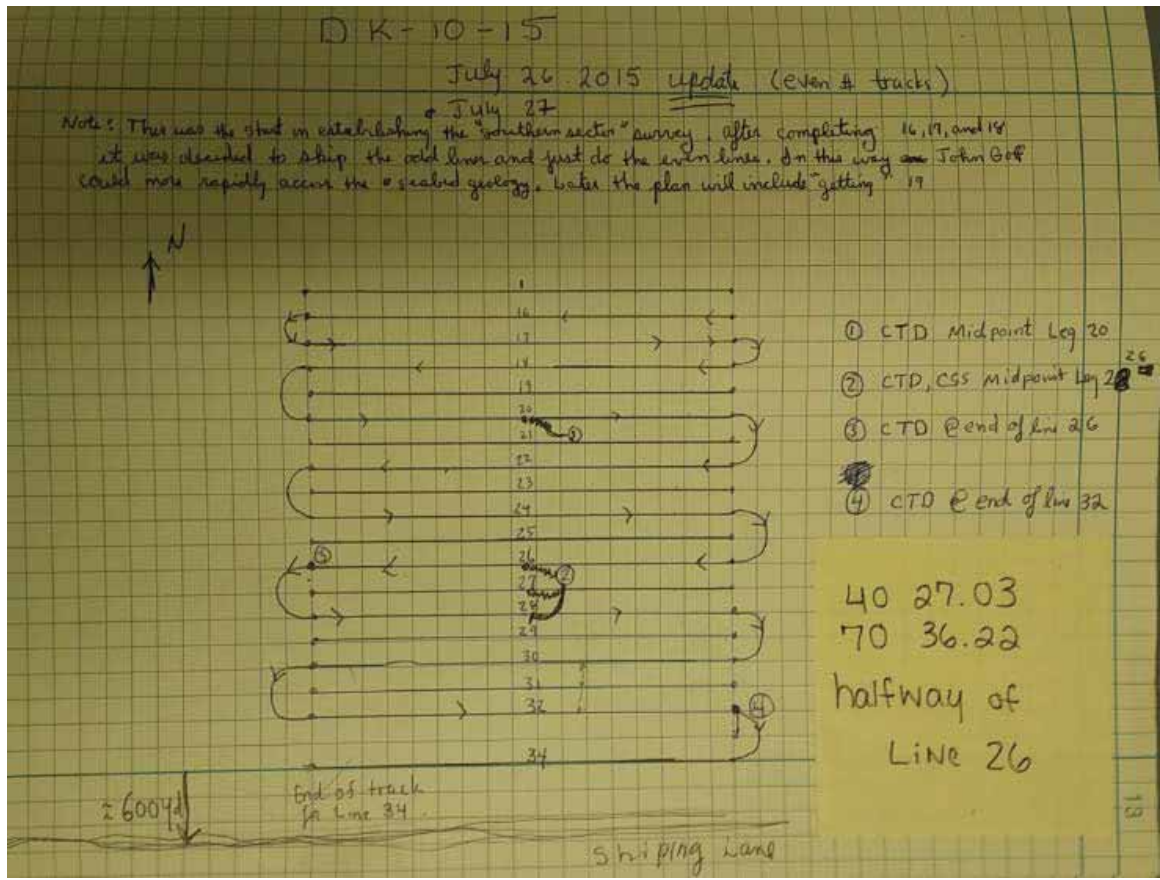 DK-10-15
July 26 2015 update (even # tracks)
& July 27
Note: This was the start in establishing the "southern sector" survey. After completing 16, 17, and 18
it was decided to skip the odd lines and just do the even lines. In this way John Goff
could more rapidly access the seabed geology. Later the plan will include "getting" 19
N
1
16
17
18
19
20
21
①
22
23
24
25
③
26
②
27
28
29
30
31
32
④
34
① CTD Midpoint Leg 20
② CTD, CSS Midpoint Leg 26
③ CTD @ end of line 26
④ CTD @ end of line 32
40 27.03
70 36.22
halfway of
LiNe 26
≈ 600yd
End of track
for Line 34
Shiping Lane
18